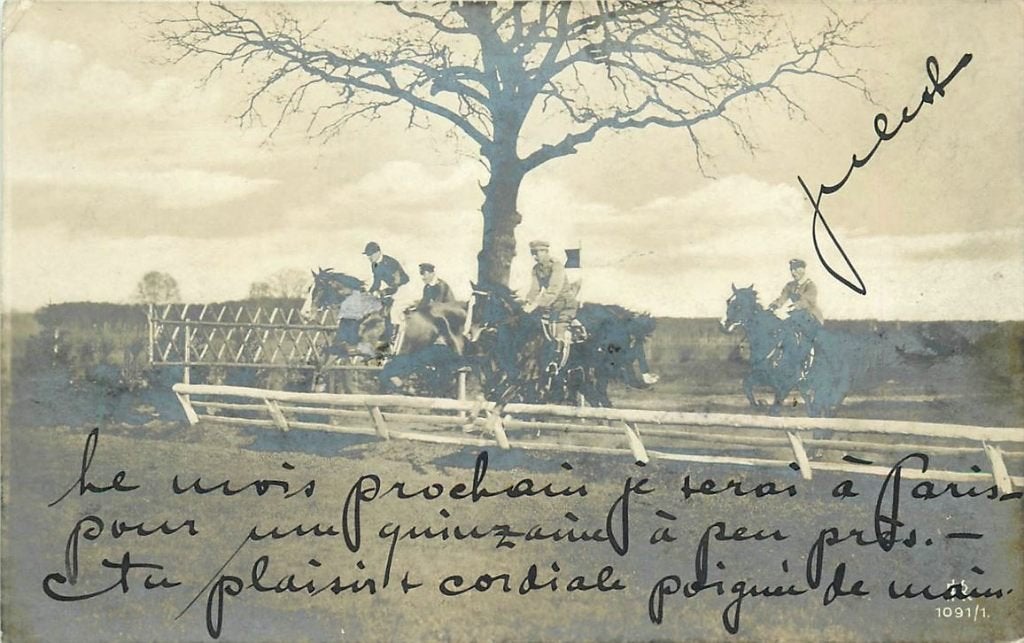 Le mois prochain je serai à Paris
pour une quinzaine à peu près. —
Au plaisir & cordiale poignée de main.
1091/1.